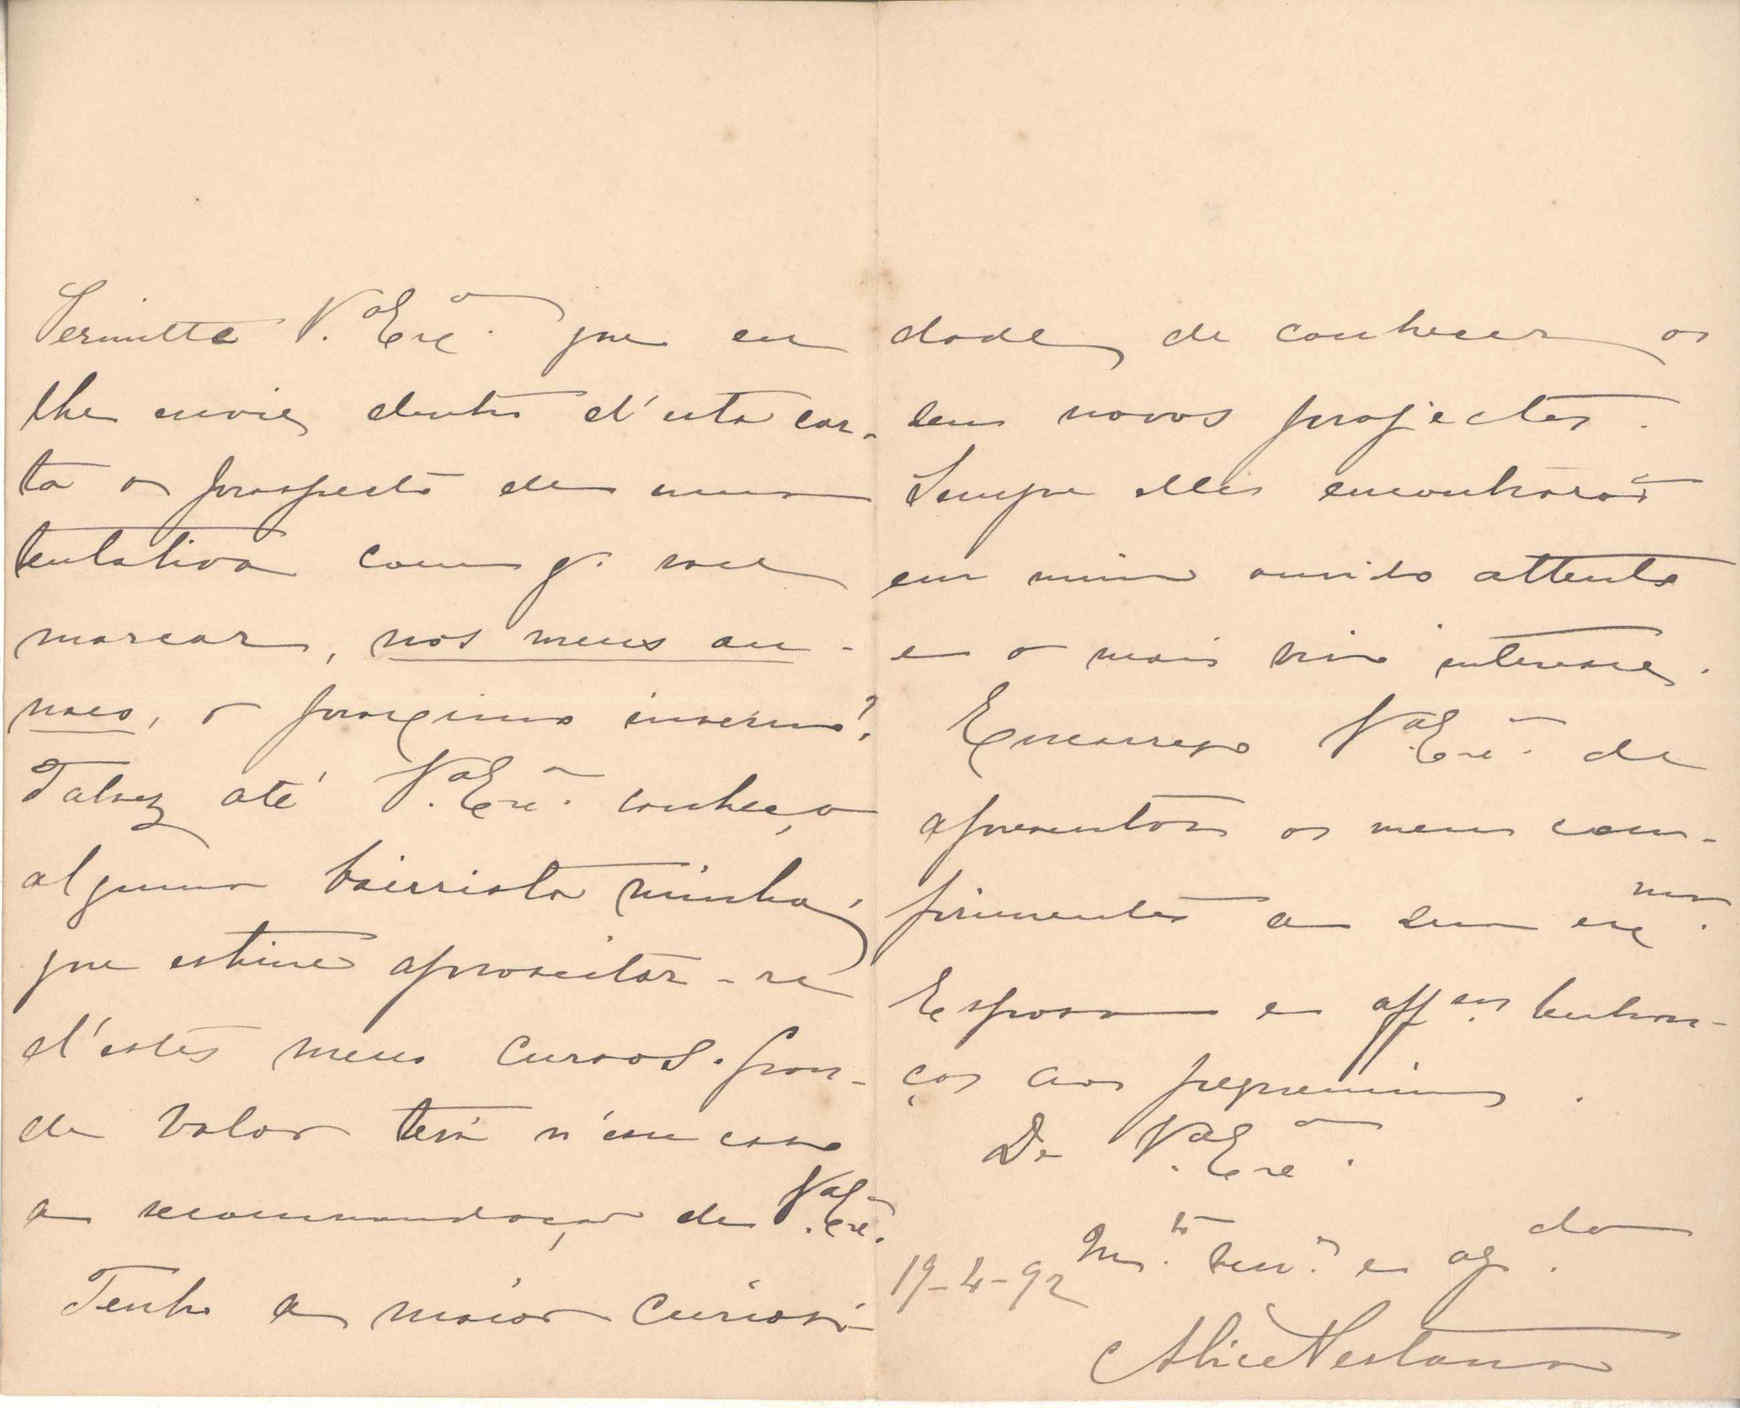 Permitte V.ª Exc.ª que eu
lhe envie dentro d'esta car-
ta o prospecto de uma
tentativa com q. vae
marcar, nos meus an-
naes, o proximo inverno?
Talvez até V.ª Exc.ª conheça
alguma bairrista minha,
que estime aproveitar-se
d'estes meus cursos. Gran-
de valor terá n'esse caso
a recommendação de V.ª Exc.ª
Tenho a maior curiosi-
dade de conhecer os
seus novos projectos.
Sempre elles encontrarão
em mim ouvido attento
e o mais vivo interesse.
Encarrego V.ª Exc.ª de
apresentar os meus com-
primentos a sua exc.ma
Esposa e aff.as lembran-
ças aos pequeninos.
De V.ª Exc.ª
M.to ven.ra e ag.da
19-4-92
Alice Pestana